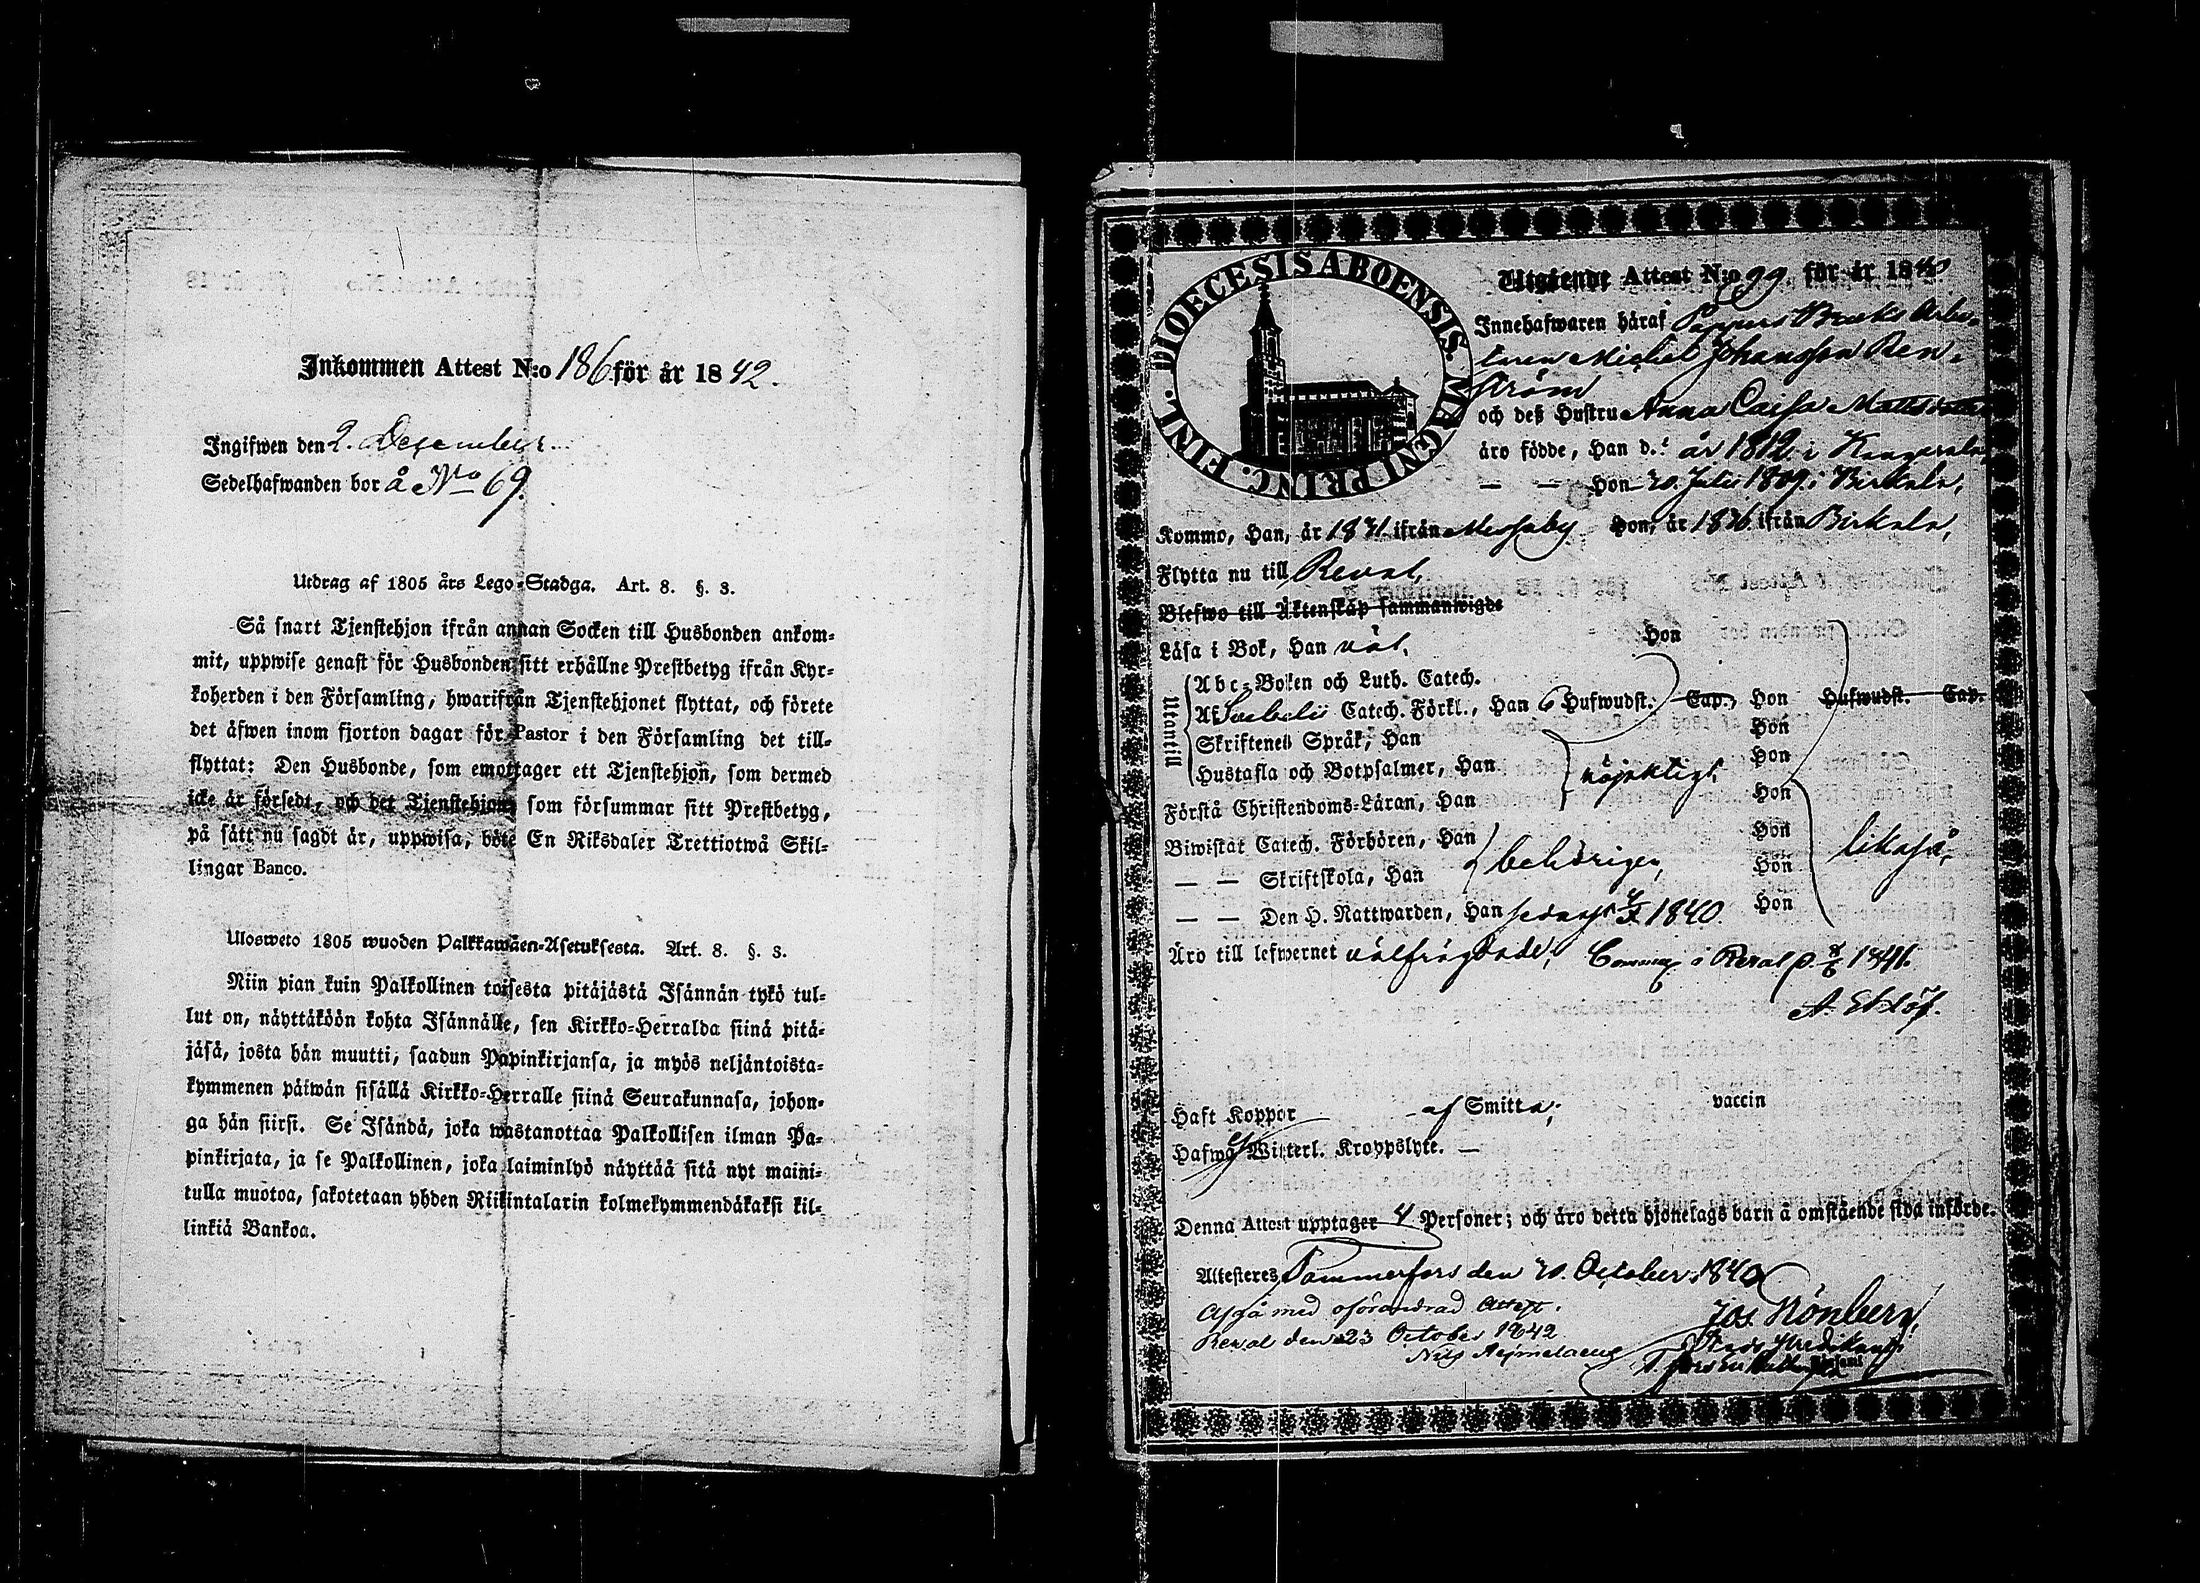 Inkommen Attest N:o 186 för år 1842.
Ingifwen den 2. December
Sedelhafwanden bor å No 69.
Utdrag af 1805 års Lego-Stadga. Art. 8. §. 3.
Så snart Tjenstehjon ifrån annan Socken till Husbonden ankom-
mit, uppwise genast för Husbonden sitt erhållne Prestbetyg ifrån Kyr-
koherden i den Församling, hwarifrån Tjenstehjonet flyttat, och förete
det äfwen inom fjorton dagar för Pastor i den Församling det till-
flyttat: Den Husbonde, som emottager ett Tjenstehjon, som dermed
icke är försedt, och det Tjenstehjon, som försummar sitt Prestbetyg,
på sätt nu sagdt är, uppwisa, böte En Riksdaler Trettiotwå Skil-
lingar Banco.
Ulosweto 1805 wuoden Palkkawäen-Asetuksesta. Art. 8. §. 3.
Niin pian kuin Palkollinen toisesta pitäjästä Isännän tykö tul-
lut on, näyttäköön kohta Isännälle, sen Kirkko-Herralda siinä pitä-
jäsä, josta hän muutti, saadun Papinkirjansa, ja myös neljäntoista-
kymmenen päiwän sisällä Kirkko-Herralle siinä Seurakunnasa, johon-
ga hän siirsi. Se Isändä, joka wastanottaa Palkollisen ilman Pa-
pinkirjata, ja se Palkollinen, joka laiminlyö näyttää sitä nyt maini-
tulla muotoa, sakotetaan yhden Riikintalarin kolmekymmendäkaksi kil-
linkiä Bankoa.
DIOECESIS ABOENSIS. MAGNI PRINC. FINL.
Utgående Attest N:o 99 för år 1840
Innehafwaren häraf Pappers Bruks Arbe-
taren Michel Johansson Ren-
ström
och deß Hustru Anna Caisa Mattsdotter
äro födde, Han d. år 1812 i Kangasala,
— — Hon 20 Julii 1809 i Birkala,
Kommo, Han, år 1831 ifrån Messuby Hon, år 1836 ifrån Birkala,
Flytta nu till Reval,
Blefwo till Äktenskap sammanwigde
Läsa i Bok, Han väl, Hon
Utantill
Abc-Boken och Luth. Catech.
Af Svebelii Catech. Förkl., Han 6 Hufwudst. Cap., Hon Hufwudst. Cap.
Skriftenes Språk, Han Hon
Hustafla och Botpsalmer, Han nöjaktigt Hon
Förstå Christendoms-Läran, Han Hon
Biwistat Catech. Förhören, Han Hon
— — Skriftskola, Han behörigen, Hon likaså,
— — Den H. Nattwarden, Han sednast 1840. Hon
Äro till lefwernet välfrägdade, Commun. i Reval 1841.
A. Eklöf.
Haft Koppor af Smitta, vaccin
Hafwa ej Witterl. Kroppslyte. —
Denna Attest upptager 4 Personer; och äro detta hjonelags barn å omstående sida införde.
Attesteres Tammerfors den 20. October 1840
Jos. Grönberg,
Afgå med oförändrad Attest.
Reval den 23 October 1842
Nils Aejmelaeus